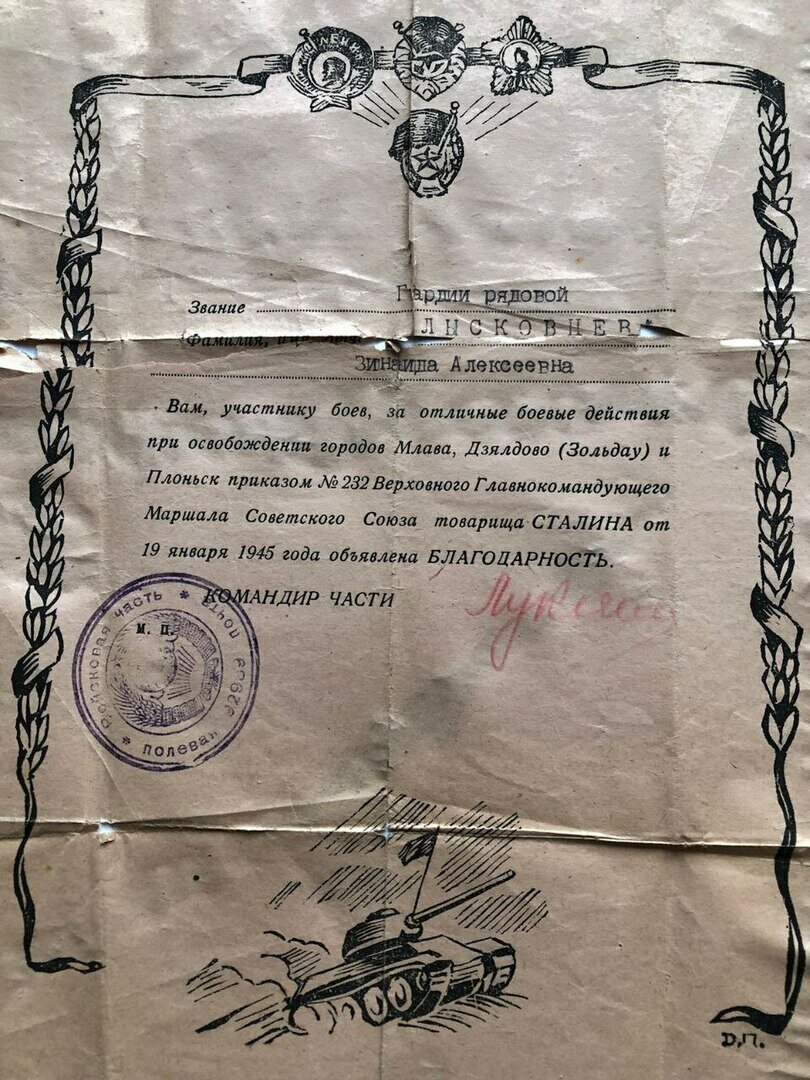 Звание Гвардии рядовой
(Фамилия,
Зинаида Алексеевна
Вам, участнику боев, за отличные боевые действия
при освобождении городов Млава, Дзялдово (Зольдау) и
Плоньск приказом № 232 Верховного Главнокомандующего
Маршала Советского Союза товарища СТАЛИНА от
19 января 1945 года объявлена БЛАГОДАРНОСТЬ.
КОМАНДИР ЧАСТИ
М. П.
полевая почта
часть
Д.П.